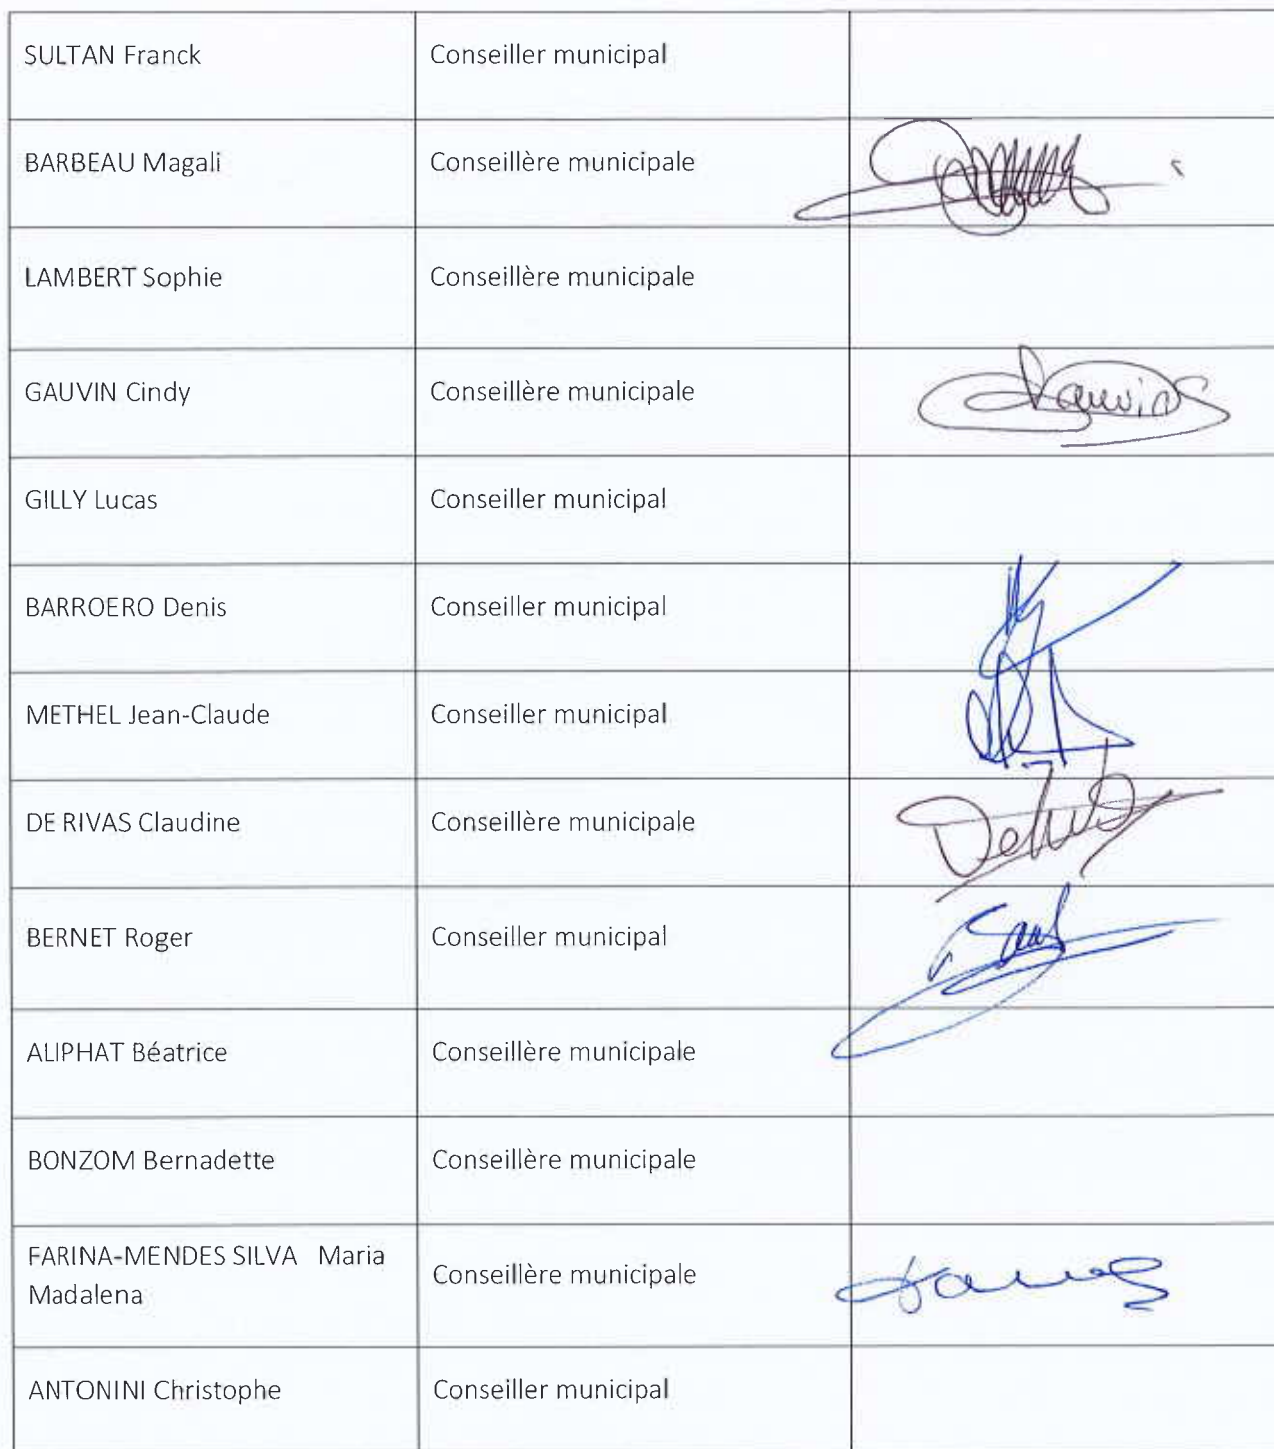 SULTAN Franck Conseiller municipal
BARBEAU Magali Conseillère municipale
LAMBERT Sophie Conseillère municipale
GAUVIN Cindy Conseillère municipale Gauvin
GILLY Lucas Conseiller municipal
BARROERO Denis Conseiller municipal
METHEL Jean-Claude Conseiller municipal
DE RIVAS Claudine Conseillère municipale
BERNET Roger Conseiller municipal
ALIPHAT Béatrice Conseillère municipale
BONZOM Bernadette Conseillère municipale
FARINA-MENDES SILVA Maria
Madalena Conseillère municipale
ANTONINI Christophe Conseiller municipal